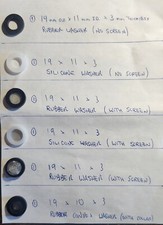 ① 19 mm OD × 11 mm ID × 3 mm
RUBBER WASHER (NO SCREEN)
② 19 × 11 × 3
SILICONE WASHER (NO SCREEN)
③ 19 × 11 × 3
RUBBER WASHER (WITH SCREEN)
④ 19 × 11 × 3
SILICONE WASHER (WITH SCREEN)
⑤ 19 × 11 × 3
RUBBER WASHER (WITH SCREEN)
⑥ 19 × 10 × 3
RUBBER WASHER (WITH